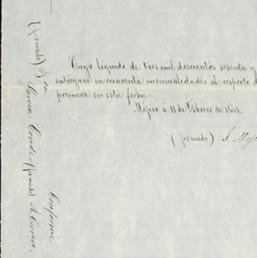 Cuyo líquido de tres mil doscientos sesenta y
entregará en cuarenta mensualidades al respecto d
primera en esta fecha.
Mejico á 11 de Febrero de
(firmado) S. Mej
Conforme
(firmado)
García Conde (firmado) A. Carrera.